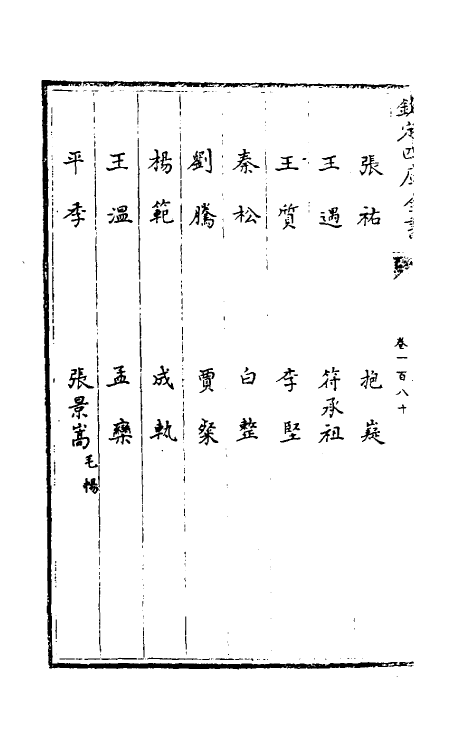 欽定四庫全書
卷一百八十
張祐 抱嶷
王遇 符承祖
王質 李堅
秦松 白整
劉騰 賈粲
楊範 成軌
王溫 孟欒
平季 張景嵩毛暢